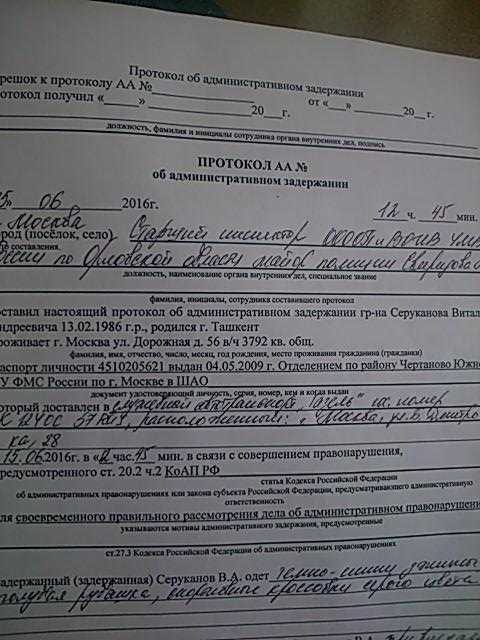 Протокол об административном задержании
решок к протоколу АА №____________
отокол получил «____» ____________20___г. от «___» ________ 20___г.
должность, фамилия и инициалы сотрудника органа внутренних дел, подпись
ПРОТОКОЛ АА №
об административном задержании
5» 06 2016г. 12 ч. 45 мин.
Москва
ород (посёлок, село) Старший инспектор ОООП и ВОИВ УМВ
составления.
оссии по Орловской области майор полиции
должность, наименование органа внутренних дел, специальное звание
фамилия, инициалы, сотрудника составившего протокол
оставил настоящий протокол об административном задержании гр-на Серуканова Витал
ндреевича 13.02.1986 г.р., родился г. Ташкент
роживает г. Москва ул. Дорожная д. 56 в/ч 3792 кв. общ.
фамилия, имя, отчество, число, месяц, год рождения, место проживания гражданина (гражданки)
аспорт личности 4510205621 выдан 04.05.2009 г. Отделением по району Чертаново Южно
У ФМС России по г. Москве в ШАО
документ удостоверяющий личность, серия, номер, кем и когда выдан
оторый доставлен в служебной автотранспорт "Газель" гос. номер
расположенный: г. Москва, ул. Б. Дмитро
ка, 28
15.06.2016г. в «12 час.45 мин. в связи с совершением правонарушения,
редусмотренного ст. 20.2 ч.2 КоАП РФ
статья Кодекса Российской Федерации
об административных правонарушениях или закона субъекта Российской Федерации, предусматривающего административную
ответственность
ля своевременного правильного рассмотрения дела об административном правонарушени
указываются мотивы административного задержания, предусмотренные
ст.27.3 Кодекса Российской Федерации об административных правонарушениях
адержанный (задержанная) Серуканов В.А. одет темно-синие джинсы
голубая рубашка, спортивные кроссовки серого цвета